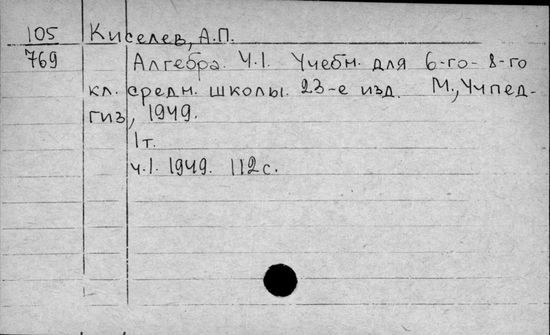 105 Киселев, А.П.
769 Алгебра. Ч.1. Учебн. для 6-го-8-го
кл. средн. школы. 23-е изд. М., Учпед-
гиз, 1949.
1т.
ч.1. 1949. 112с.